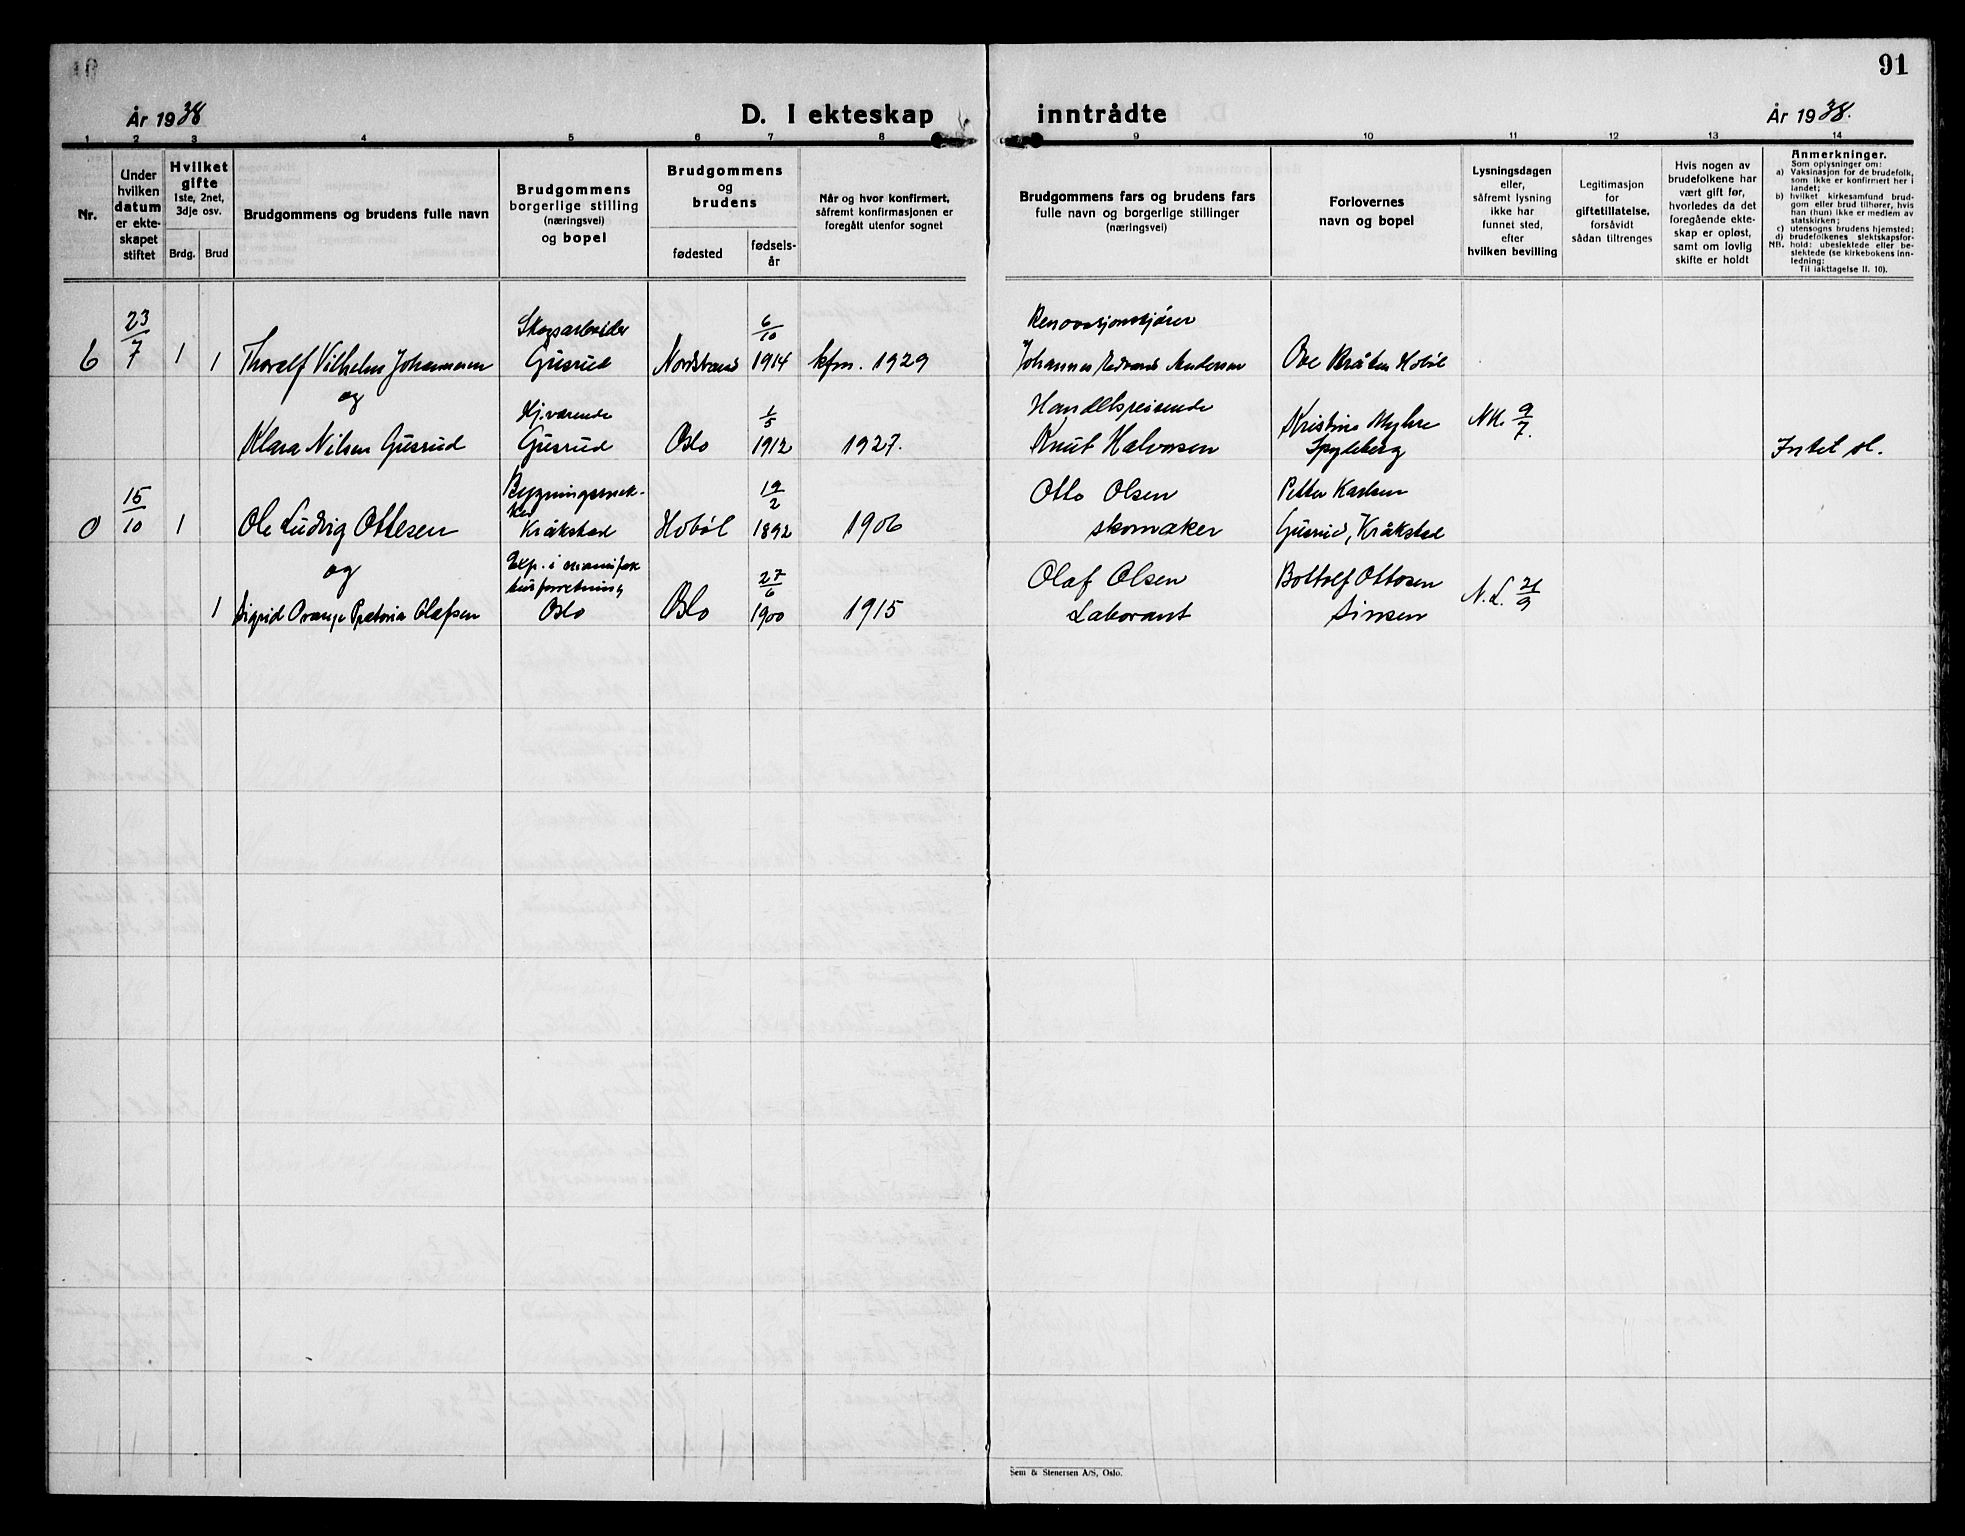 91
År 1938
D. I ekteskap inntrådte
År 1938.
1 2 3 4 5 6 7 8 9 10 11 12 13 14
Nr.
Under
hvilken
datum
er ekte-
skapet
stiftet
Hvilket
gifte
1ste, 2net,
3dje osv.
Brdg. Brud
Brudgommens og brudens fulle navn
Brudgommens
borgerlige stilling
(næringsvei)
og bopel
Brudgommens
og
brudens
fødested
fødsels-
år
Når og hvor konfirmert,
såfremt konfirmasjonen er
foregått utenfor sognet
Brudgommens fars og brudens fars
fulle navn og borgerlige stillinger
(næringsvei)
Forlovernes
navn og bopel
Lysningsdagen
eller,
såfremt lysning
ikke har
funnet sted,
efter
hvilken bevilling
Legitimasjon
for
giftetillatelse,
forsåvidt
sådan tiltrenges
Hvis nogen av
brudefolkene har
vært gift før,
hvorledes da det
foregående ekte-
skap er opløst,
samt om lovlig
skifte er holdt
Anmerkninger.
Som oplysninger om:
a) Vaksinasjon for de brudefolk,
som ikke er konfirmert her i
landet;
b) hvilket kirkesamfund brud-
gom eller brud tilhører, hvis
han (hun) ikke er medlem av
statskirken;
c) utensogns brudens hjemsted;
d) brudefolkenes slektskapsfor-
NB. hold: ubeslektede eller be-
slektede (se kirkebokens inn-
ledning:
Til iakttagelse II. 10).
23 Skogsarbeider 6 Renovasjonskjører
6 7 1 1 Thoralf Vilhelm Johannesen Gusrud Nordstrand 10 1914 kfm. 1929 Johannes Edvard Andersen Ove Bråten Hobøl
og Hj.værende 1 Handelsreisende
Klara Nilsen Gusrud Gusrud Oslo 5 1912 1927. Knut Halvorsen Kristine Myhre Spydeberg NK. 9/7. Intet sl.
15 Bygningssnek- 19 Otto Olsen Petter Karlsen
0 10 1 Ole Ludvig Ottesen ker Kråkstad Hobøl 2 1892 1906 skomaker Gusrud, Kråkstad
og Exp. i manufak 27 Olaf Olsen Bottolf Ottosen
turforretning
1 Sigrid Orange Pretoria Olafsen Oslo Oslo 6 1900 1915 Laborant Sinsen N.L. 21/9
Sem & Stenersen A/S, Oslo.